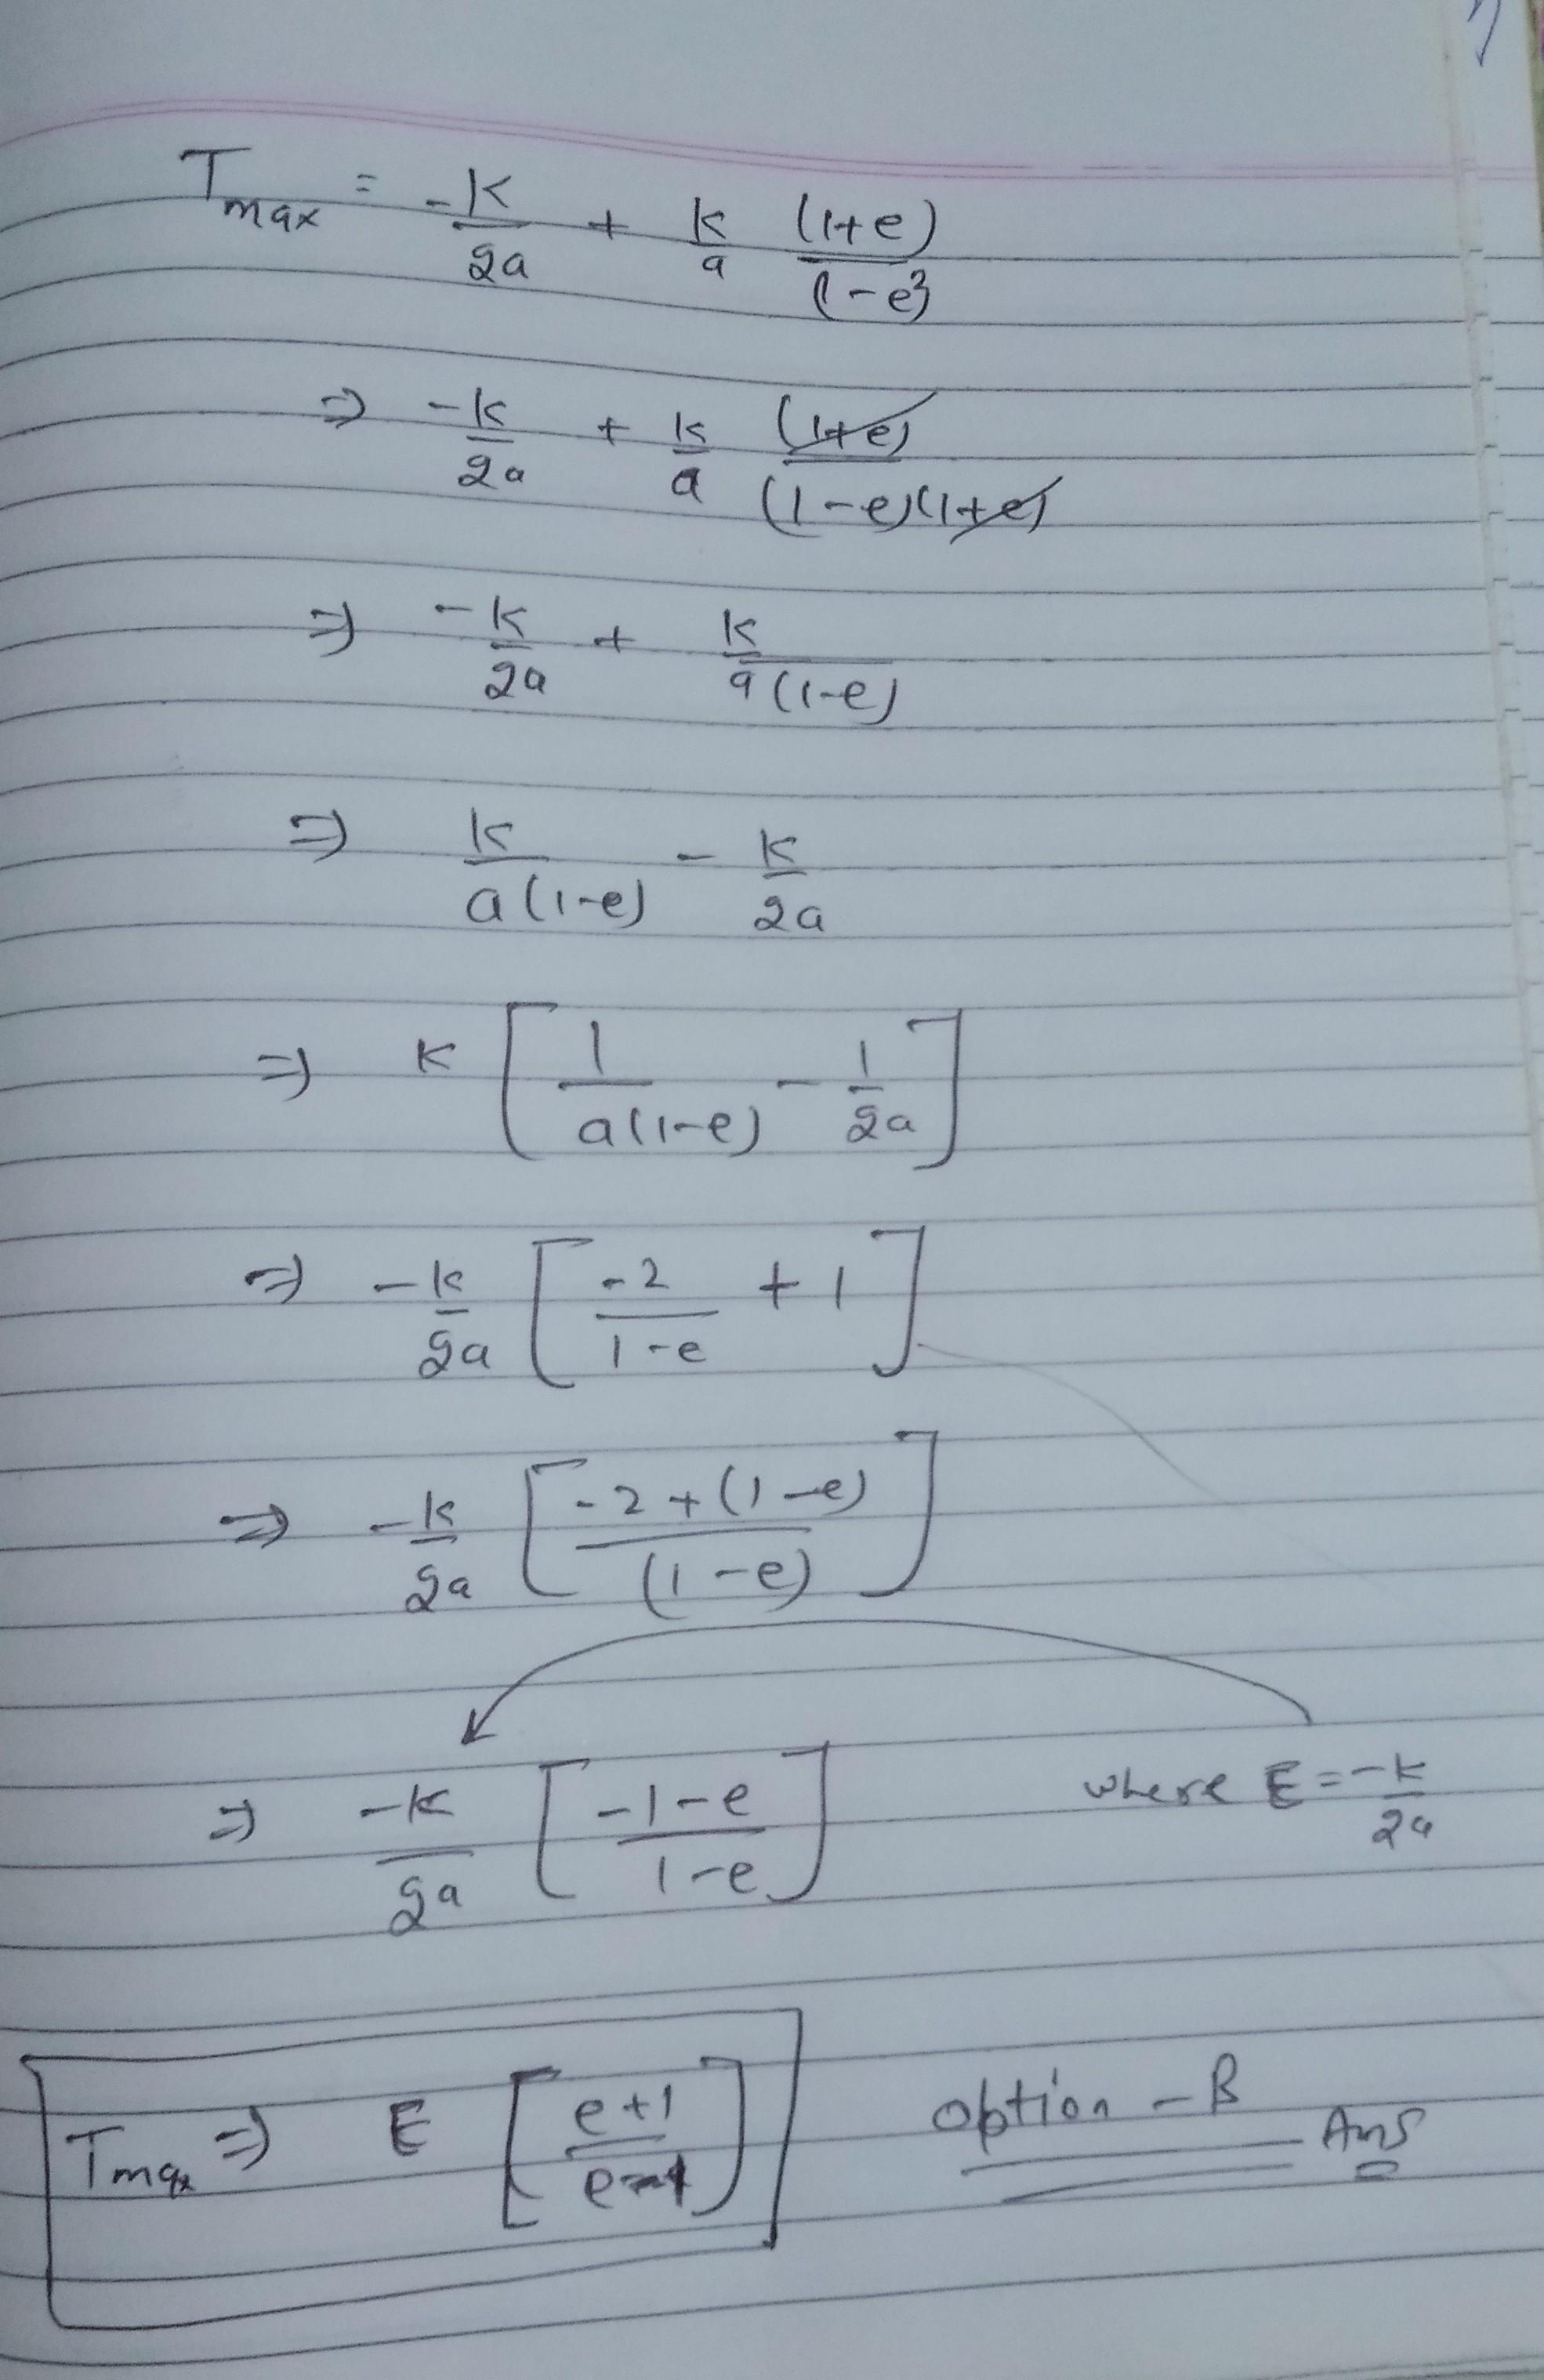 T_max = -k/2a + k/a (1+e)/(1-e²)
⇒ -k/2a + k/a (1+e)/(1-e)(1+e)
⇒ -k/2a + k/a(1-e)
⇒ k/a(1-e) - k/2a
⇒ k [1/a(1-e) - 1/2a]
⇒ -k/2a [-2/1-e + 1]
⇒ -k/2a [-2+(1-e)/(1-e)]
⇒ -k/2a [-1-e/1-e] where E = -k/2a
T_max ⇒ E [e+1/e-1] option - B Ans